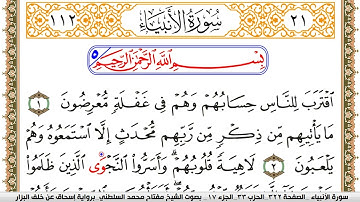 ٢١ سُورَةُ الْأَنْبِيَاءِ ١١٢
بِسْمِ اللَّهِ الرَّحْمَٰنِ الرَّحِيمِ ٥
اقْتَرَبَ لِلنَّاسِ حِسَابُهُمْ وَهُمْ فِي غَفْلَةٍ مُعْرِضُونَ ١
مَا يَأْتِيهِم مِن ذِكْرٍ مِن رَبِّهِم مُحْدَثٍ إِلَّا اسْتَمَعُوهُ وَهُمْ
يَلْعَبُونَ ٢ لَاهِيَةً قُلُوبُهُمْ وَأَسَرُّوا النَّجْوَى الَّذِينَ ظَلَمُوا
سورة الأنبياء . الصفحة ٣٢٢ الحزب ٣٣ الجزء ١٧ . بصوت الشيخ مفتاح محمد السلطني . برواية إسحاق عن خلف البزار